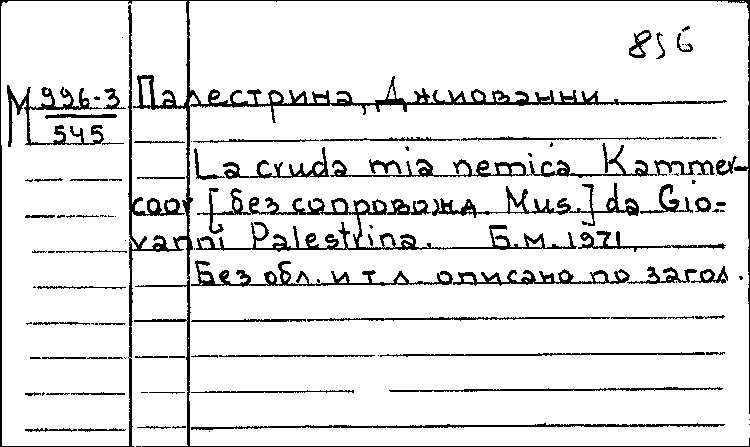 856
М 996-3 Палестрина, Джиованни.
545
La cruda mia nemica. Kammer-
coor [без сопровожд. Mus.] da Gio-
vanni Palestrina. Б.м. 1971.
Без обл. и т.л. описано по загол.